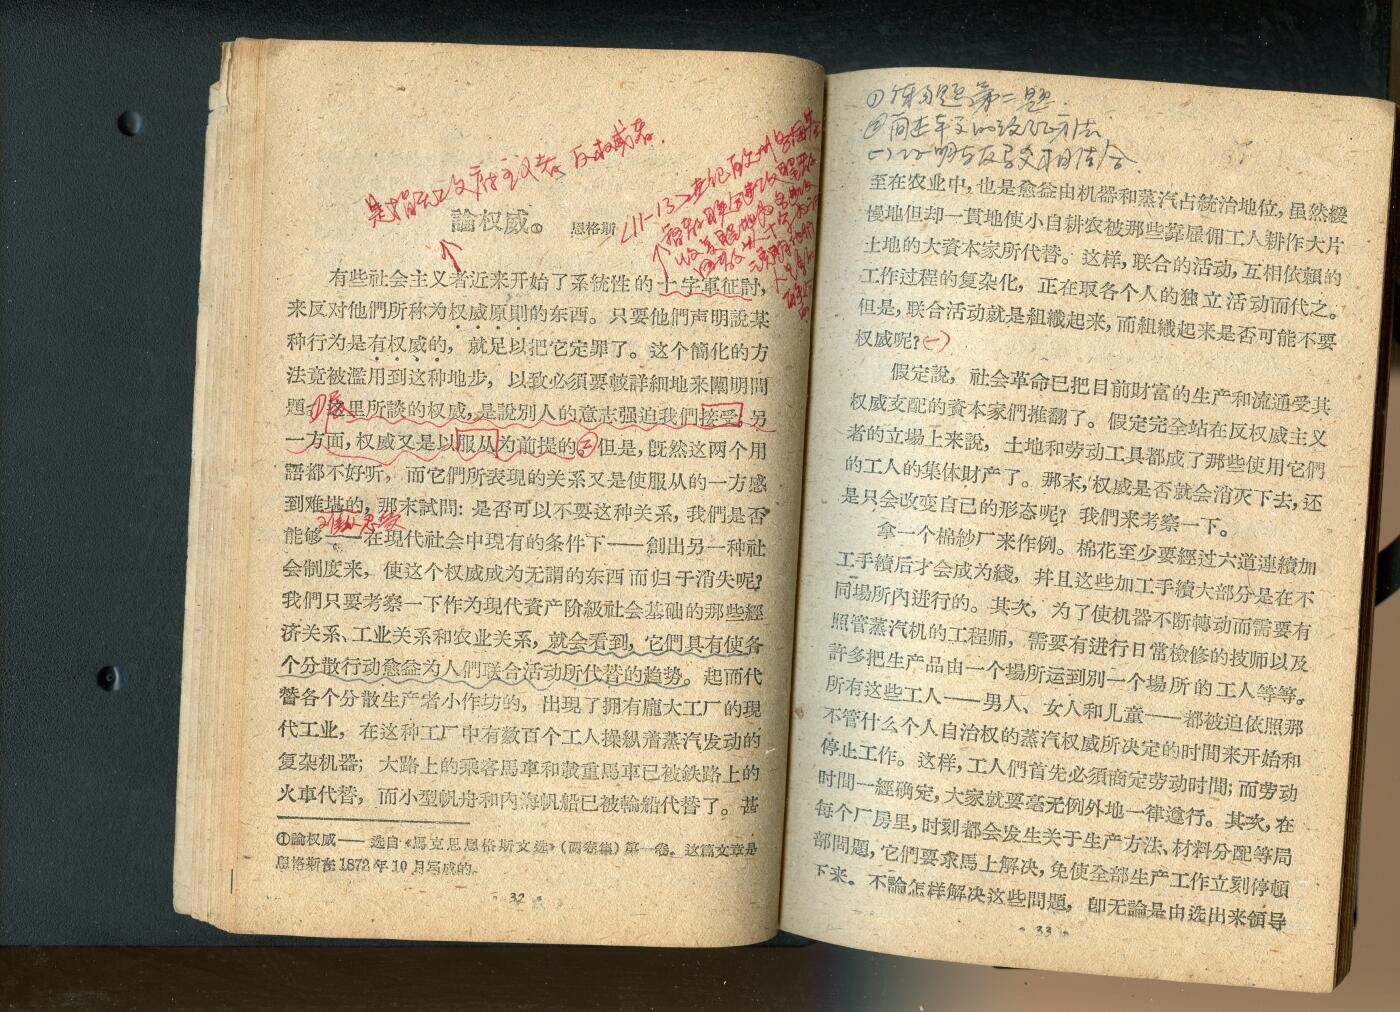 是指无政府主义者 反权威者.
論权威① 恩格斯
有些社会主义者近来开始了系統性的十字軍征討，
来反对他們所称为权威原則的东西。只要他們声明說某
种行为是有权威的，就足以把它定罪了。这个簡化的方
法竟被濫用到这种地步，以致必須要較詳細地来闡明問
題。这里所談的权威，是說別人的意志强迫我們接受。另
一方面，权威又是以服从为前提的。但是，旣然这两个用
語都不好听，而它們所表現的关系又是使服从的一方感
到难堪的，那末試問：是否可以不要这种关系，我們是否
能够——在現代社会中現有的条件下——創出另一种社
会制度来，使这个权威成为无謂的东西而归于消失呢？
我們只要考察一下作为現代資产阶級社会基础的那些經
济关系、工业关系和农业关系，就会看到，它們具有使各
个分散行动愈益为人們联合活动所代替的趋势。起而代
替各个分散生产者小作坊的，出現了拥有龐大工厂的現
代工业，在这种工厂中有数百个工人操縱着蒸汽发动的
复杂机器；大路上的乘客馬車和載重馬車已被鉄路上的
火車代替，而小型帆舟和內海帆船已被輪船代替了。甚
①論权威——选自《馬克思恩格斯文选》（两卷集）第一卷。这篇文章是
恩格斯在1872年10月写成的。
· 32 ·
①练习题第二题.
(一)证明与反驳相结合
至在农业中，也是愈益由机器和蒸汽占統治地位，虽然緩
慢地但却一貫地使小自耕农被那些靠雇佣工人耕作大片
土地的大資本家所代替。这样，联合的活动，互相依賴的
工作过程的复杂化，正在取各个人的独立活动而代之。
但是，联合活动就是組織起来，而組織起来是否可能不要
权威呢？(一)
假定說，社会革命已把目前財富的生产和流通受其
权威支配的資本家們推翻了。假定完全站在反权威主义
者的立場上来說，土地和劳动工具都成了那些使用它們
的工人的集体財产了。那末，权威是否就会消灭下去，还
是只会改变自己的形态呢？我們来考察一下。
拿一个棉紗厂来作例。棉花至少要經过六道連續加
工手續后才会成为綫，幷且这些加工手續大部分是在不
同場所內进行的。其次，为了使机器不断轉动而需要有
照管蒸汽机的工程师，需要有进行日常檢修的技师以及
許多把生产品由一个場所运到別一个場所的工人等等。
所有这些工人——男人、女人和儿童——都被迫依照那
不管什么个人自治权的蒸汽权威所决定的时間来开始和
停止工作。这样，工人們首先必須商定劳动时間；而劳动
时間一經确定，大家就要毫无例外地一律遵行。其次，在
每个厂房里，时刻都会发生关于生产方法、材料分配等局
部問題，它們要求馬上解决，免使全部生产工作立刻停頓
下来。不論怎样解决这些問題，卽无論是由选出来領导
· 33 ·